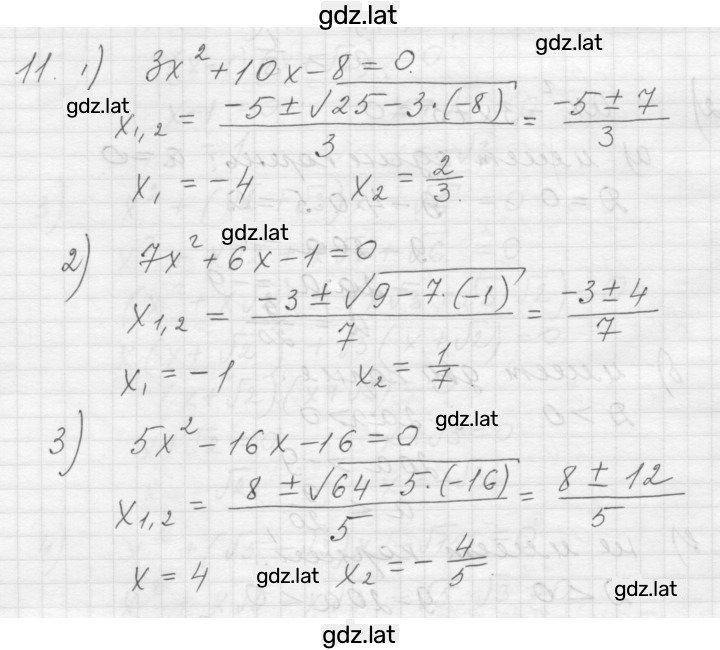 gdz.lat
11. 1) 3x² + 10x − 8 = 0.
gdz.lat
gdz.lat
x₁,₂ = (−5 ± √(25 − 3·(−8)))/3 = (−5 ± 7)/3
x₁ = −4 x₂ = 2/3.
gdz.lat
2) 7x² + 6x − 1 = 0
x₁,₂ = (−3 ± √(9 − 7·(−1)))/7 = (−3 ± 4)/7
x₁ = −1 x₂ = 1/7
gdz.lat
3) 5x² − 16x − 16 = 0
x₁,₂ = (8 ± √(64 − 5·(−16)))/5 = (8 ± 12)/5
x = 4 x₂ = −4/5.
gdz.lat
gdz.lat
gdz.lat